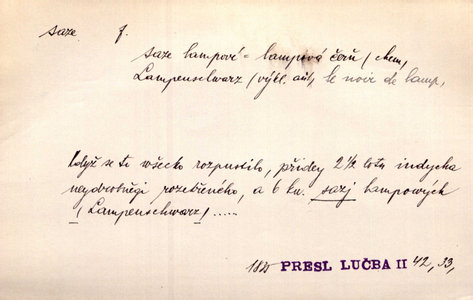 saze f.
saze lampové = lampová čerň / chem,
Lampenschwarz / výkl. aut, le noir de lamp,
Když se to wšecko rozpustilo, přidey 2 1/2 lotu indycha
neydrobněgi rozetřeného, a 6 kw. sazj lampowých
/ Lampenschwarz / .....
1825 PRESL LUČBA II 42, 33,